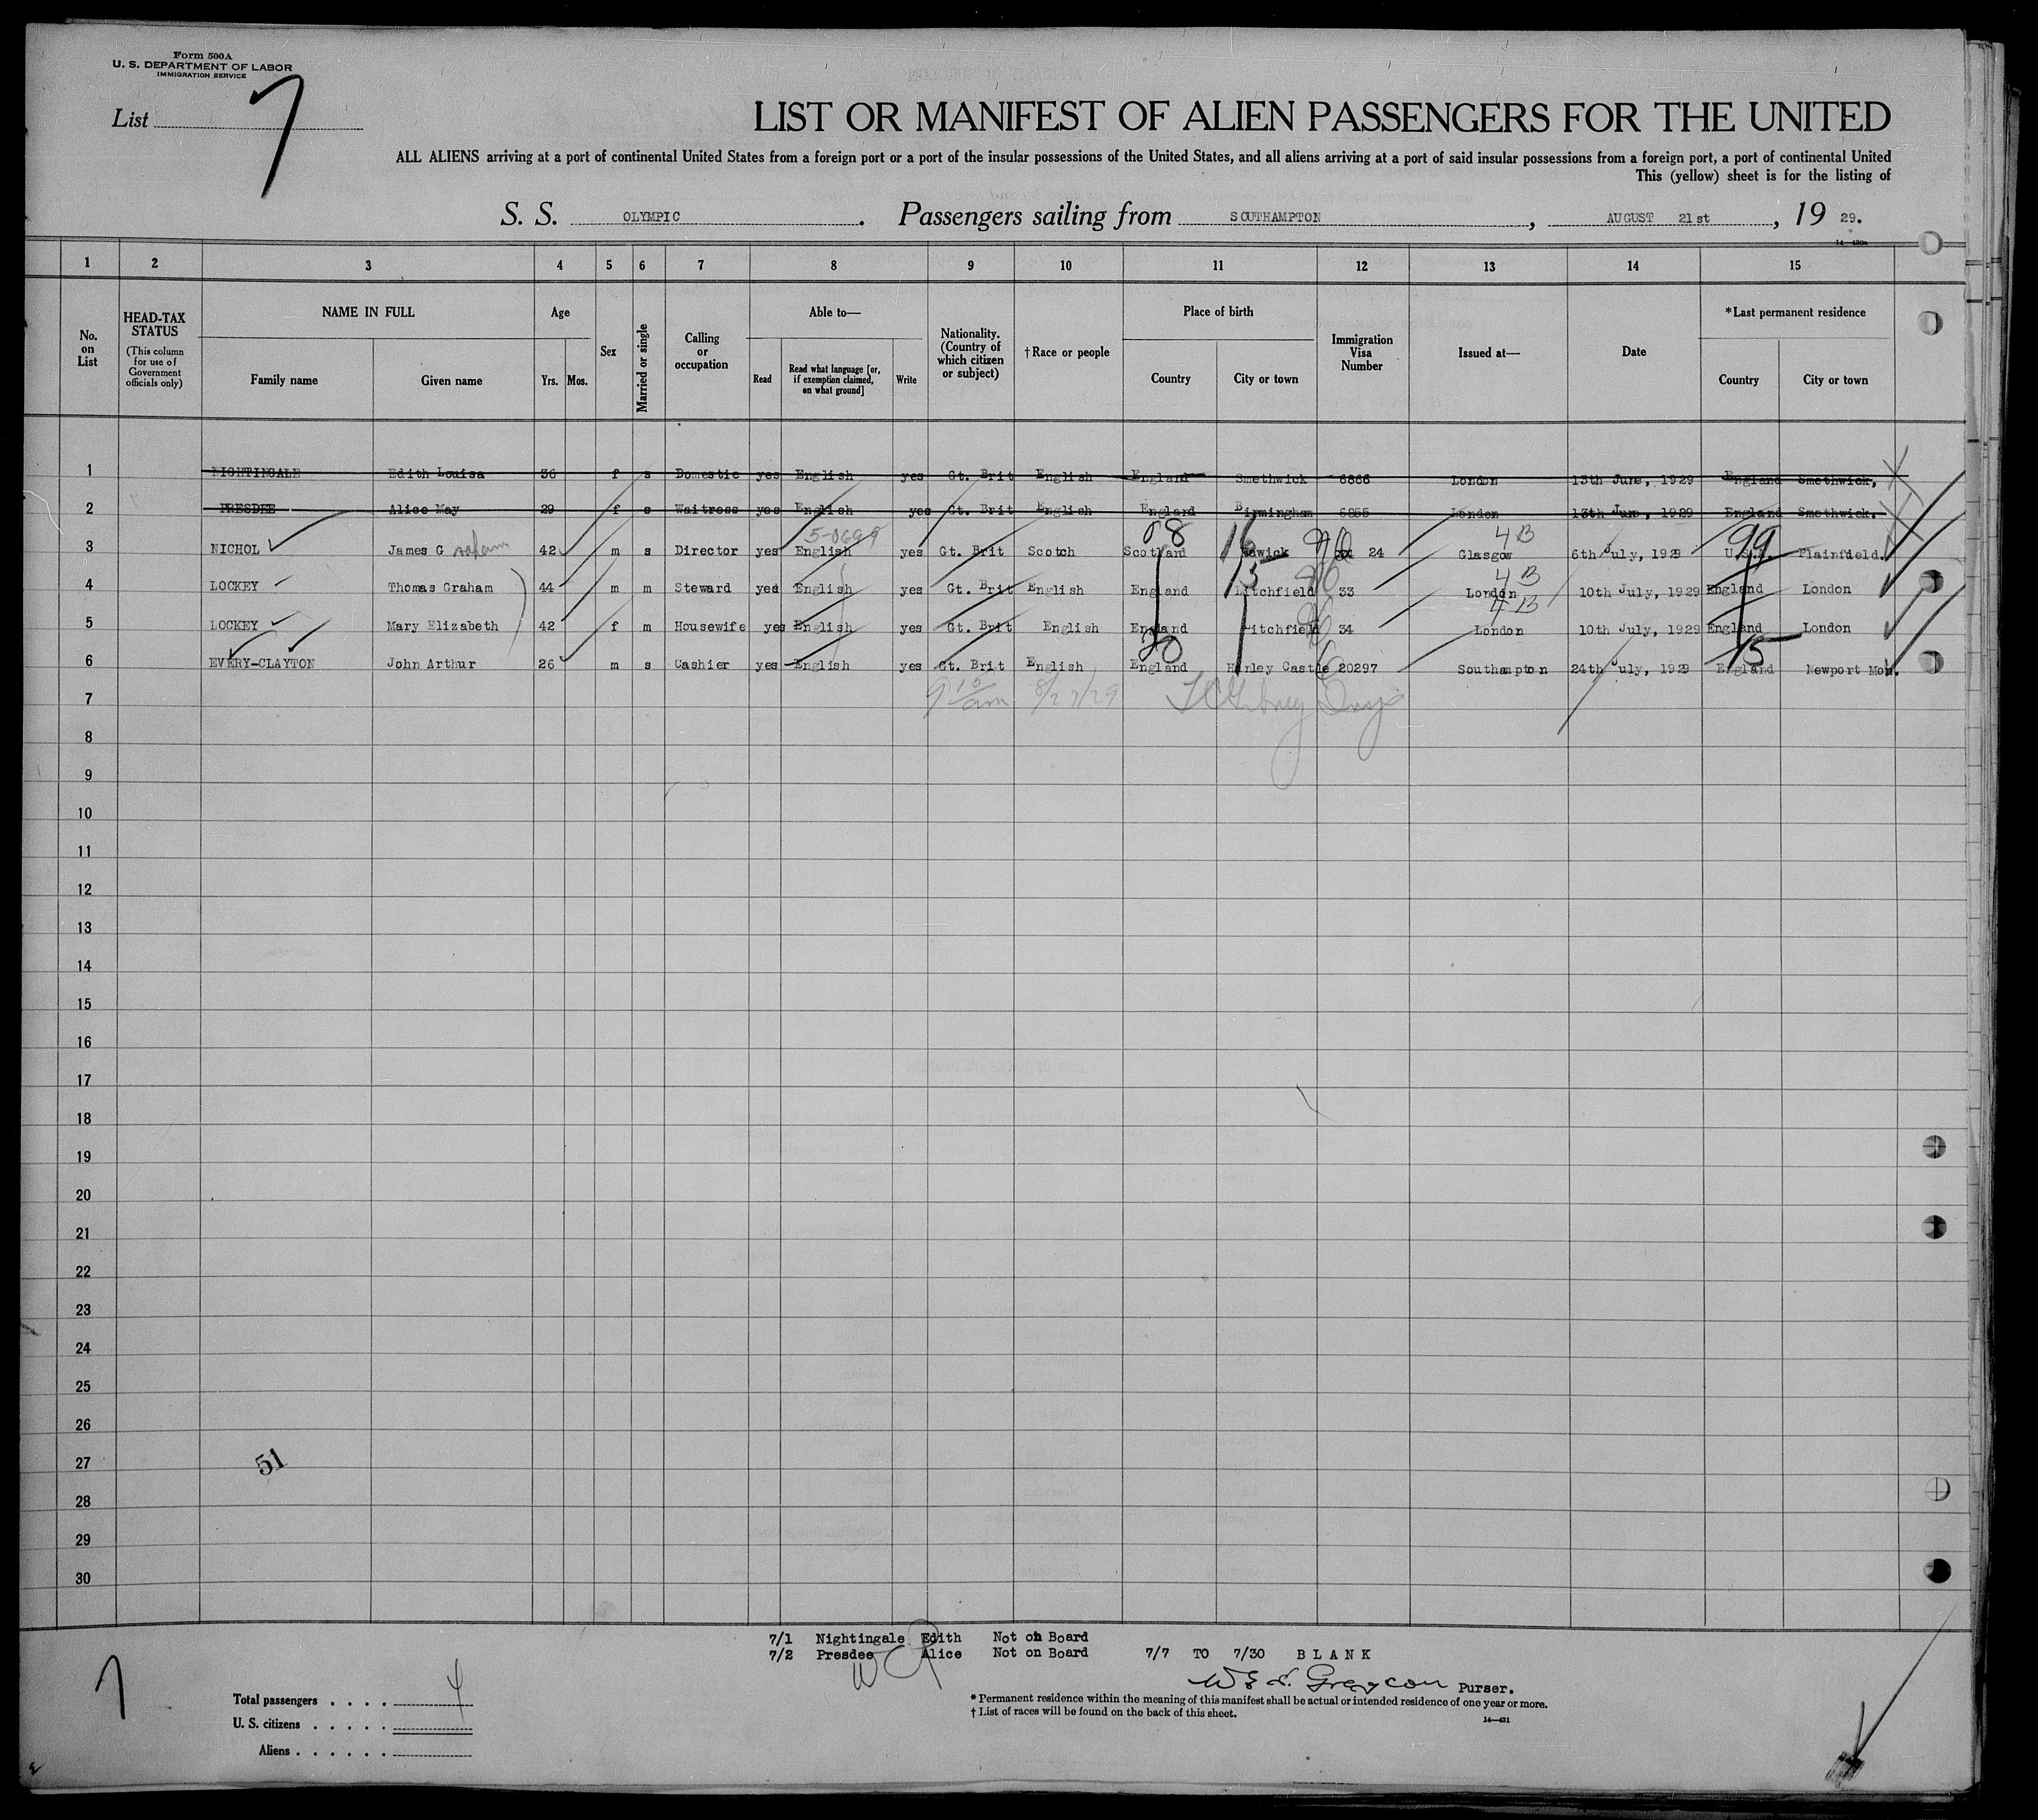 Form 500A
U. S. DEPARTMENT OF LABOR
IMMIGRATION SERVICE
List 7
LIST OR MANIFEST OF ALIEN PASSENGERS FOR THE UNITED
ALL ALIENS arriving at a port of continental United States from a foreign port or a port of the insular possessions of the United States, and all aliens arriving at a port of said insular possessions from a foreign port, a port of continental United
This (yellow) sheet is for the listing of
S. S. OLYMPIC. Passengers sailing from SOUTHAMPTON, AUGUST 21st, 19 29.
1 2 3 4 5 6 7 8 9 10 11 12 13 14 15
No. on List
HEAD-TAX STATUS
(This column for use of Government officials only)
NAME IN FULL
Family name Given name
Age
Yrs. Mos.
Sex
Married or single
Calling or occupation
Able to—
Read
Read what language [or, if exemption claimed, on what ground]
Write
Nationality. (Country of which citizen or subject)
†Race or people
Place of birth
Country City or town
Immigration Visa Number
Issued at—
Date
*Last permanent residence
Country City or town
1 NIGHTINGALE Edith Louisa 36 f s Domestic yes English yes Gt. Brit English England Smethwick 6866 London 13th June, 1929 England Smethwick,
2 PRESDEE Alice May 29 f s Waitress yes English yes Gt. Brit English England Birmingham 6855 London 13th June, 1929 England Smethwick.
5-0699 08 16 4B 99
3 NICHOL James Graham 42 m s Director yes English yes Gt. Brit Scotch Scotland Hawick 24 Glasgow 6th July, 1929 U.S.A. Plainfield.
15 4B
4 LOCKEY Thomas Graham 44 m m Steward yes English yes Gt. Brit English England Litchfield 33 London 10th July, 1929 England London
4B
5 LOCKEY Mary Elizabeth 42 f m Housewife yes English yes Gt. Brit English England Litchfield 34 London 10th July, 1929 England London
15
6 EVERY-CLAYTON John Arthur 26 m s Cashier yes English yes Gt. Brit English England Hanley Castle 20297 Southampton 24th July, 1929 England Newport Mon.
7 9 15/am 8/27/29
8
9
10
11
12
13
14
15
16
17
18
19
20
21
22
23
24
25
26
27 51
28
29
30
7/1 Nightingale Edith Not on Board
7/2 Presdee Alice Not on Board 7/7 TO 7/30 BLANK
7
Purser.
Total passengers . . . . 4
U. S. citizens . . . . .
Aliens . . . . . .
*Permanent residence within the meaning of this manifest shall be actual or intended residence of one year or more.
†List of races will be found on the back of this sheet.
14—431